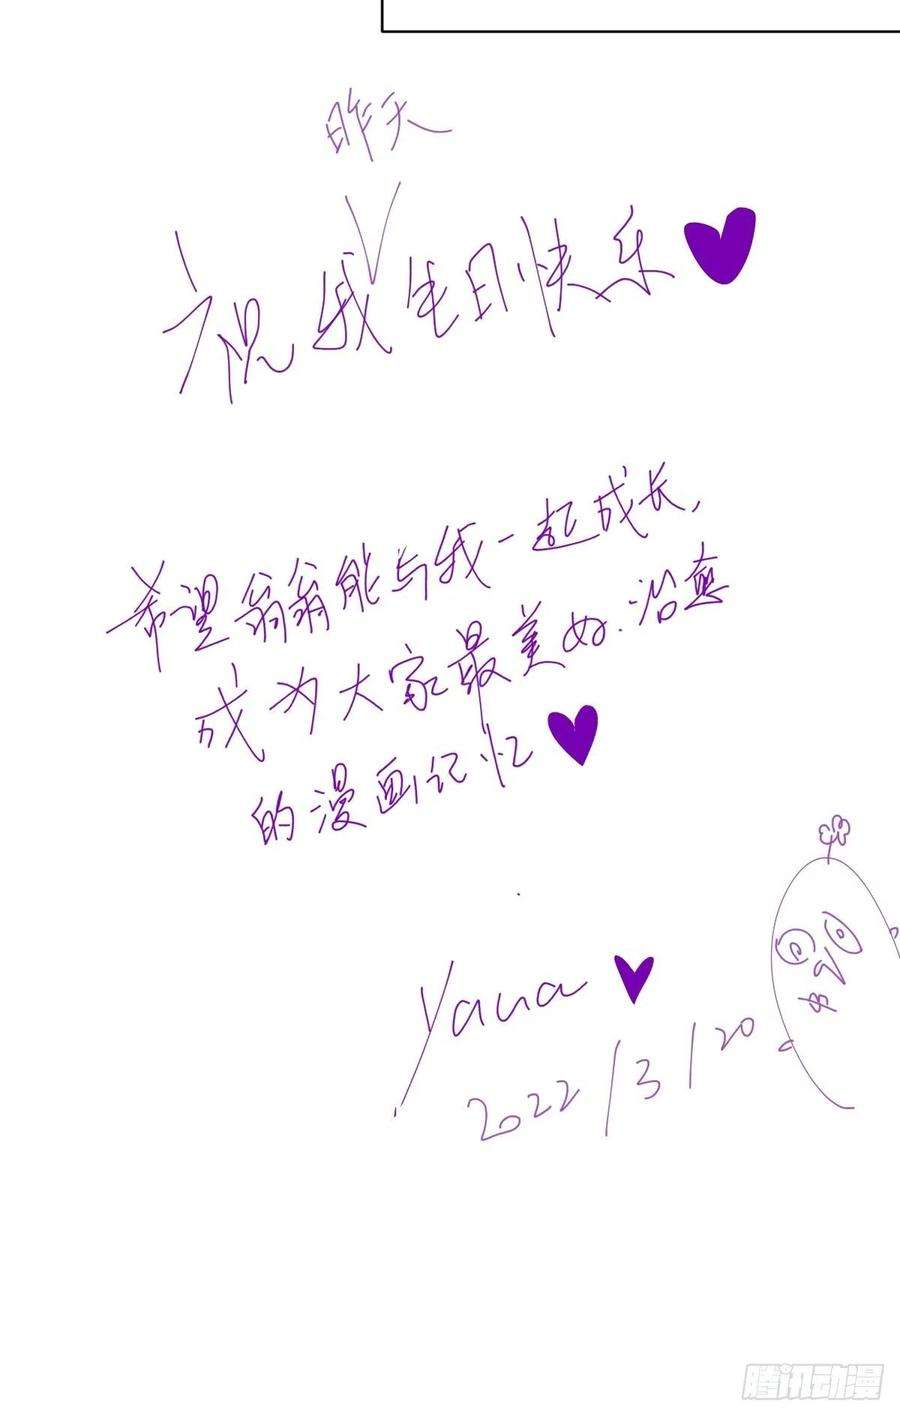 昨天
祝我生日快乐
希望翁翁能与我一起成长,
成为大家最美好.治愈
的漫画记忆
Yana
2022/3/20
腾讯动漫